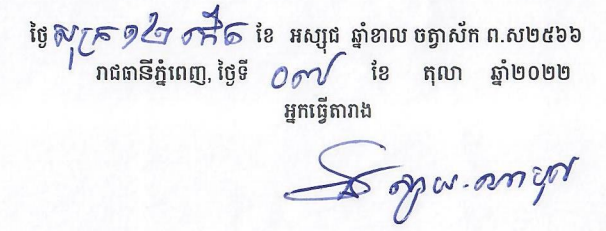 ថ្ងៃ សុក្រ ១២ កើត ខែ អស្សុជ ឆ្នាំខាល ចត្វាស័ក ព.ស២៥៦៦
រាជធានីភ្នំពេញ, ថ្ងៃទី ០៧ ខែ តុលា ឆ្នាំ២០២២
អ្នកធ្វើតារាង